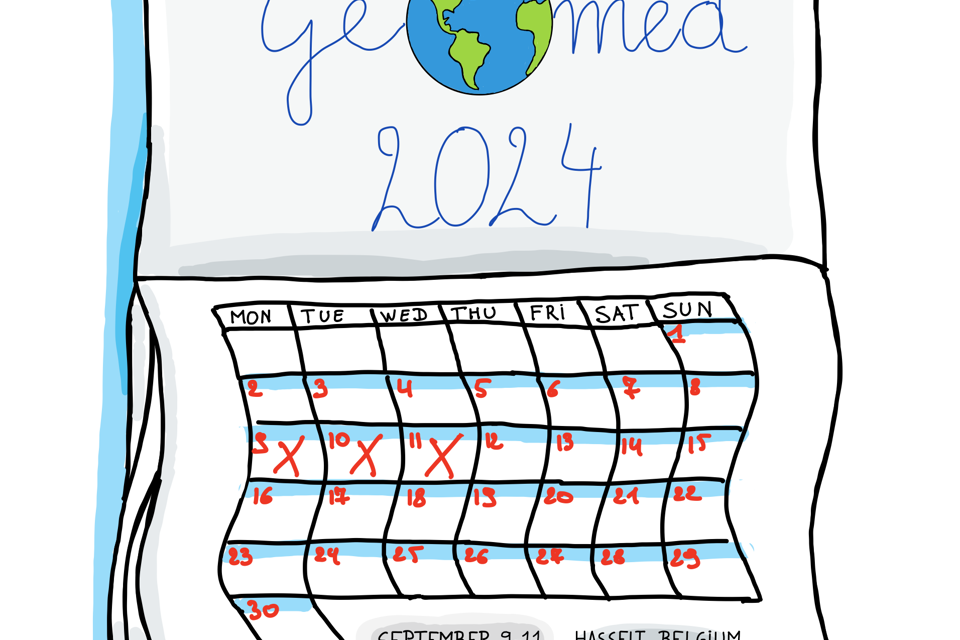 Ge med
2024
MON TUE WED THU FRI SAT SUN
1
2 3 4 5 6 7 8
9 X 10 X 11 X 12 13 14 15
16 17 18 19 20 21 22
23 24 25 26 27 28 29
30
SEPTEMBER 9-11 HASSELT, BELGIUM